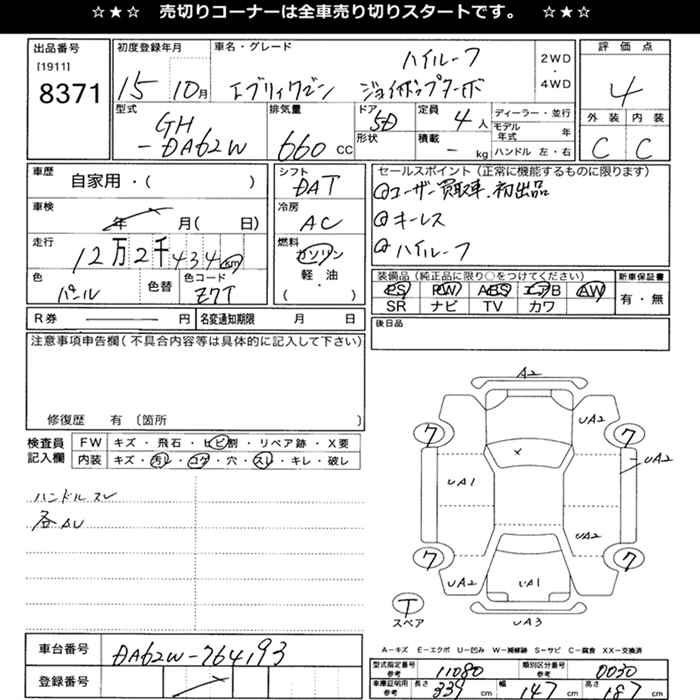 ☆★☆ 売切りコーナーは全車売り切りスタートです。 ☆★☆
出品番号
[1911]
8371
初度登録年月
15 10月
車名・グレード
ハイルーフ
エブリィワゴン ジョイポップターボ
2WD
・
4WD
評価点
4
外装 内装
C C
型式
GH
-DA62W
排気量
660 CC
ドア
5D
形状
定員
4 人
積載
- kg
ディーラー・並行
モデル
年式 年
ハンドル 左・右
車歴
自家用・( )
車検
年 月( 日)
走行
12万2千434km
色
パール
色替
色コード
Z7T
シフト
DAT
冷房
AC
燃料
ガソリン
軽・油
( )
セールスポイント(正常に機能するものに限ります)
①ユーザー買取車.初出品
②キーレス
③ハイルーフ
装備品(純正品に限り○をつけてください)
PS PW ABS エアB AW
SR ナビ TV カワ
新車保証書
有・無
R券 円
名変通知期限 月 日
後日品
注意事項申告欄(不具合内容等は具体的に記入して下さい)
修復歴 有 〔箇所 〕
検査員
記入欄
FW キズ・飛石・ヒビ割・リペア跡・X要
内装 キズ・汚レ・コゲ・穴・スレ・キレ・破レ
ハンドルスレ
各AU
A2
UA2
7 7
×
UA2
UA1
UA2
7 7
UA2 UA1 UA2
T
スペア
UA3
A-キズ E-エクボ U-凹み W-補修跡 S-サビ C-腐食 XX-交換済
車台番号
DA62W-764193
登録番号
型式指定番号
参考
11080
類別区分番号
参考
0030
車庫証明用
参考
長さ 339 cm 幅 147 cm 高さ 187 cm